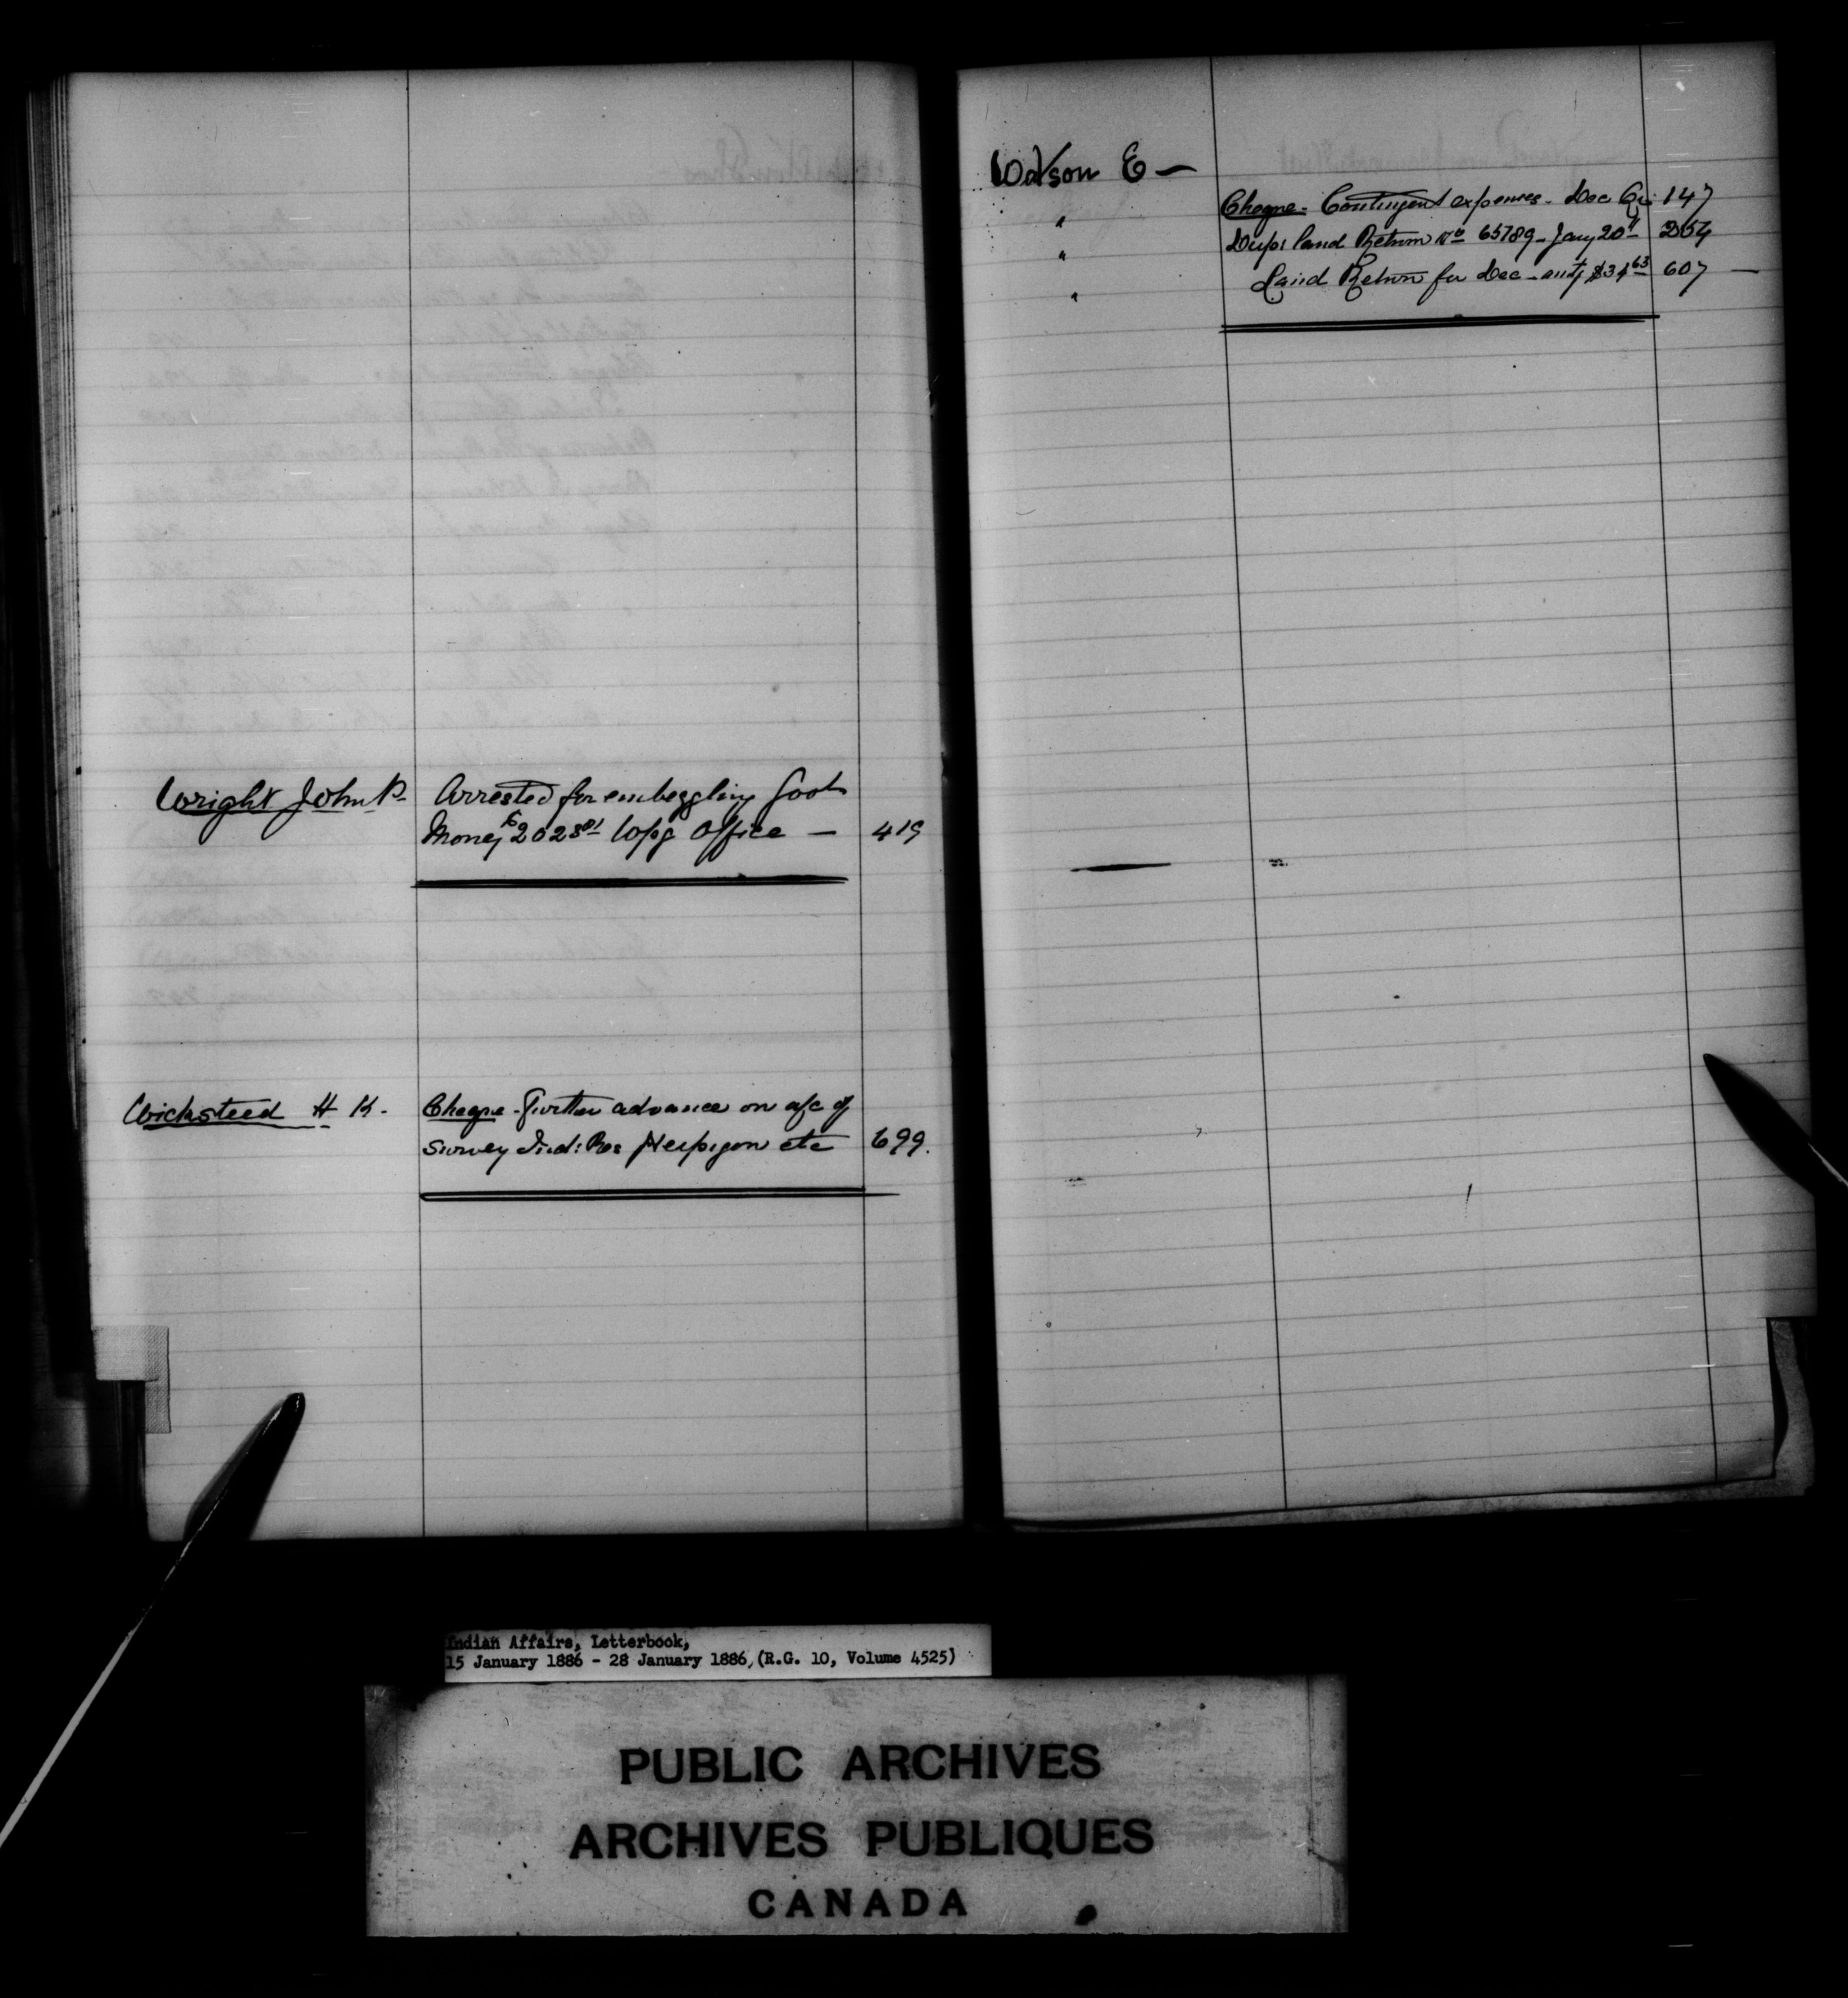 Wright John P. Arrested for embezzling Govt
Money $2028.01 Wpg Office — 419
Wicksteed H K. Cheque - Further advance on a/c of
Survey Ind: Res Neepigon etc 699.
Watson E —
" Cheque - Contingent expenses - Dec Qr 147
" Dupl land Return No 65789 - Jany 20th 254
" Land Return for Dec - amtg $34.63 607 —
Indian Affairs, Letterbook,
15 January 1886 - 28 January 1886, (R.G. 10, Volume 4525)
PUBLIC ARCHIVES
ARCHIVES PUBLIQUES
CANADA